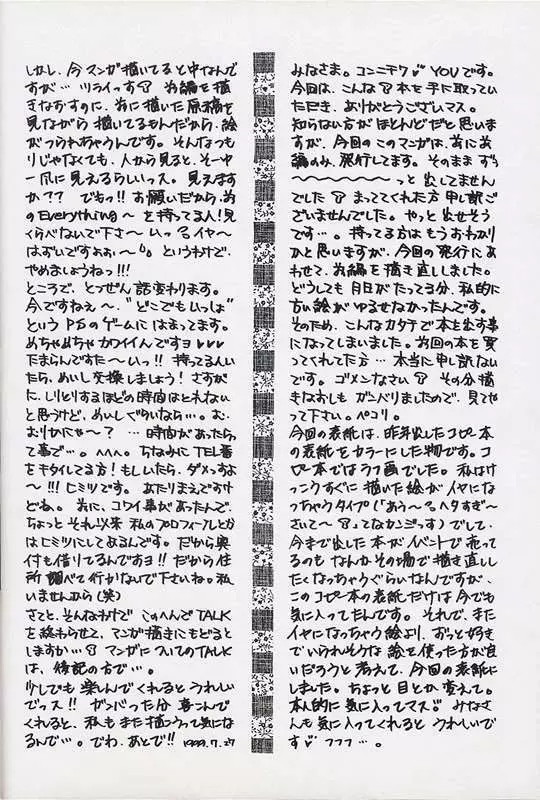 みなさま。コンニチワ♡ YOUです。
今回は、こんな本を手に取っていただき、ありがとうございマス。
知らない方がほとんどだと思いますが、今回のこのマンガは、前に前編のみ、発行してます。そのまま ずぅ
〜〜〜〜〜〜〜〜っと 出してません
でした まっててくれた方 申し訳ご
ざいませんでした。やっと 出せそう
です…。持ってる方は もうおわかり
かと思いますが、今回の発行にあ
わせて、前編を描き直ししました。
どうしても 月日がたってる分、私的に
古い絵が ゆるせなかったんです。
そのため、こんなカタチで本を出す事
になってしまいました。前回の本を買
ってくれてた方… 本当に申し訳ない
です。ゴメンなさい その分描
きなおしも ガンバりましたので、見てや
って下さい。ペコリ。
今回の表紙は、昨年出したコピー本
の表紙をカラーにした物です。コ
ピー本では ラフ画でした。私はけ
っこうすぐに描いた絵が イヤにな
っちゃうタイプ(「あぅ〜 ヘタすぎ〜
さいて〜」ってなカンジっす)でして、
今まで出した本が イベントで 売って
るのも なんか その場で描き直し
したくなっちゃうぐらいなんですが、
このコピー本の表紙だけは今でも
気に入ってたんです。それで、また
イヤになっちゃう絵より、ずっと好き
でいられそうな 絵を使った方が良
いだろうと 考えて、今回の表紙に
しました。ちょっと 目とか 変えて。
本人的に気に入ってマス♡ みなさ
んも気に入ってくれると うれしいで
す♡ フフフ…。
しかし、今マンガ描いてると中なんで
すが… ツライっす 前編を描
きなおすのに、前に描いた原稿を
見ながら 描いてるもんだから、絵
がつられちゃうんです。そんなつも
りじゃなくても、人から見ると、そー中
一爪に見えるらしいっス。見えます
か?? でもっ!! お願いだから、前
のEverything〜 を持ってる人!見
くらべないで下さ〜いっ イヤ〜
はずいですよぉぉ〜 というわけで、
やめましょうねっ!!!
ところで、とつぜん話変わります。
今ですねぇ〜、"どこでもいっしょ"
という PSのゲームに はまってます。
めちゃめちゃ カワイイんですヨ♡♡♡
たまらんですた〜いっ!! 持ってる人い
たら、めいし交換しましょう! さすが
に、しりとりするほどの時間はとれない
と思うけど、めいしぐらいなら…。お、
おりかにゃ〜? …時間があったら、
て事で…。ヘヘヘ。ちなみに TEL番
をキタイしてる方!もしいたら、ダメっすよ
〜!!! ヒミツです。あたりまえですけ
どね。前に、コワイ事があったんで、
ちょっと それ以来 私のプロフィールとか
はヒミツにしてあるんです。だから奥
付も借りてるんですヨ!! だから住
所 調べて行かないで下さいねっ 私
いませんから(笑)
さてと、そんなわけで このへんでTALK
を終わらせて、マンガ描きにもどると
しますか…マンガについてのTALK
は、後記の方で…。
少しでも 楽しんでくれると うれしい
でっス!! ガンバった分 喜こんで
くれると、私も また描こうって気にな
るんで…。でわ、あとで!! 1999.7.27